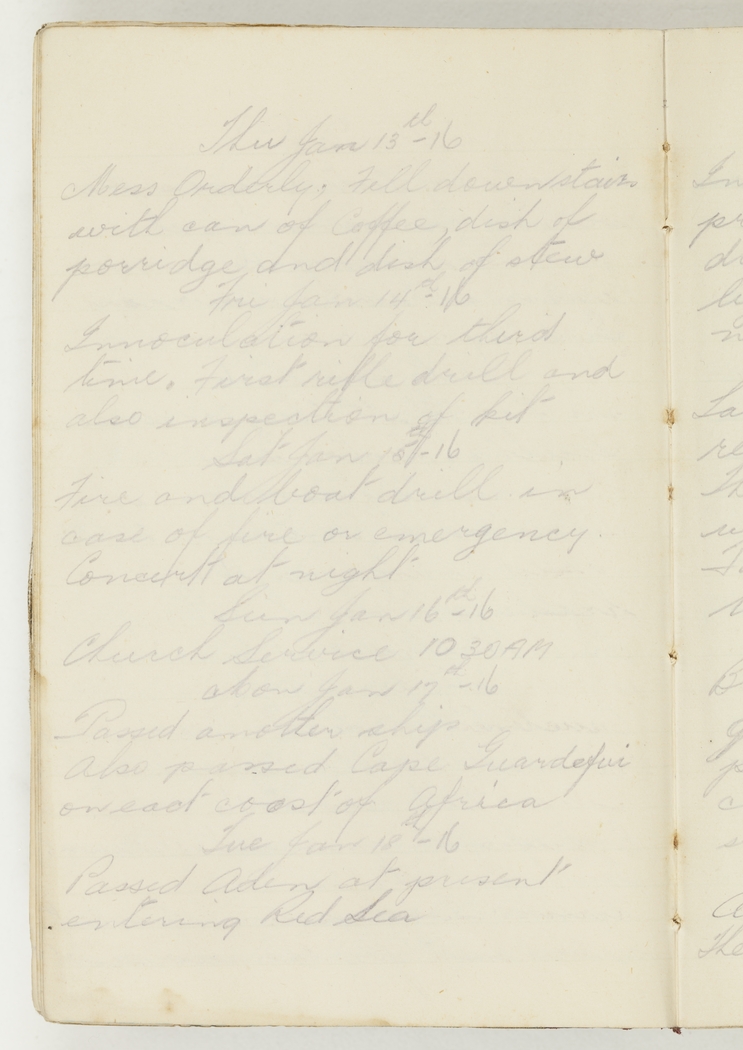 Thu Jan 13th-16
Mess Orderly. Fell downstairs
with can of Coffee, dish of
porridge, and dish of stew
Fri Jan 14th-16
Innoculation for third
time. First rifle drill and
also inspection of kit
Sat Jan 15th-16
Fire and boat drill in
case of fire or emergency.
Concert at night
Sun Jan 16th-16
Church Service 10 30 AM
Mon Jan 17th-16
Passed another ship
Also passed Cape Guardefui
on east coast of Africa
Tue Jan 18th-16
Passed Aden, at present
entering Red Sea